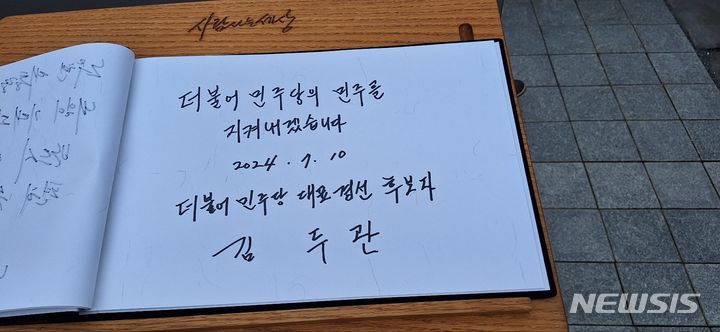 사람사는세상
더불어 민주당의 민주를
지켜내겠습니다
2024. 7. 10
더불어 민주당 대표경선 후보자
김 두 관
NEWSIS